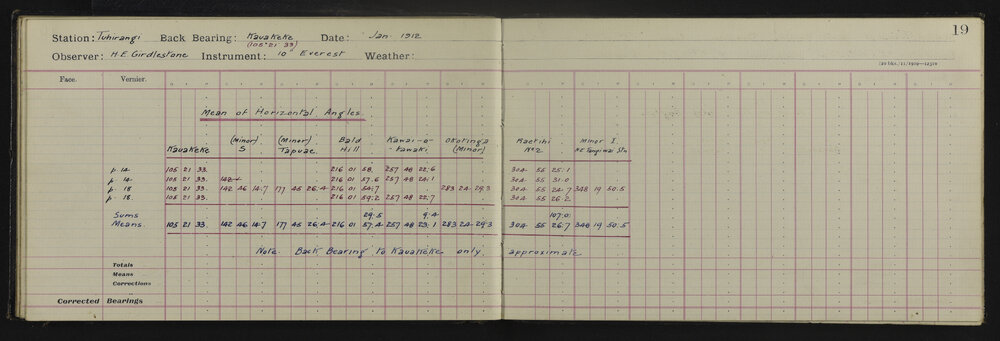 19
Station: Tuhirangi Back Bearing: Kauakeke Date: Jan 1912
(105° 21' 33)
Observer: H.E. Girdlestone Instrument: 10" Everest Weather:
Face. Vernier.
Mean of Horizontal Angles
Kauakeke (Minor) S (Minor) Tapuae Bald Hill Kawai-o-tawaki Okotinga (Minor) Raetihi No 2 Minor I
p 14 105 21 33. 216 01 58. 257 48 22.6 304 55 25.1
p 14 105 21 33. 216 01 57.6 257 48 24.1 304 55 31.0
p 18 105 21 33. 142 46 14.7 177 45 26.4 216 01 54.7 283 24 29.3 304 55 24.7 348 19 50.5
p 18. 105 21 33. 216 01 59.2 257 48 22.7 304 55 26.2
Sums 29.5 9.4 107.0
Means. 105 21 33. 142 46 14.7 177 45 26.4 216 01 57.4 257 48 23.1 283 24 29.3 304 55 26.7 348 19 50.5
Note. Back Bearing to Kauakeke only approximate
Totals
Means
Corrections
Corrected Bearings